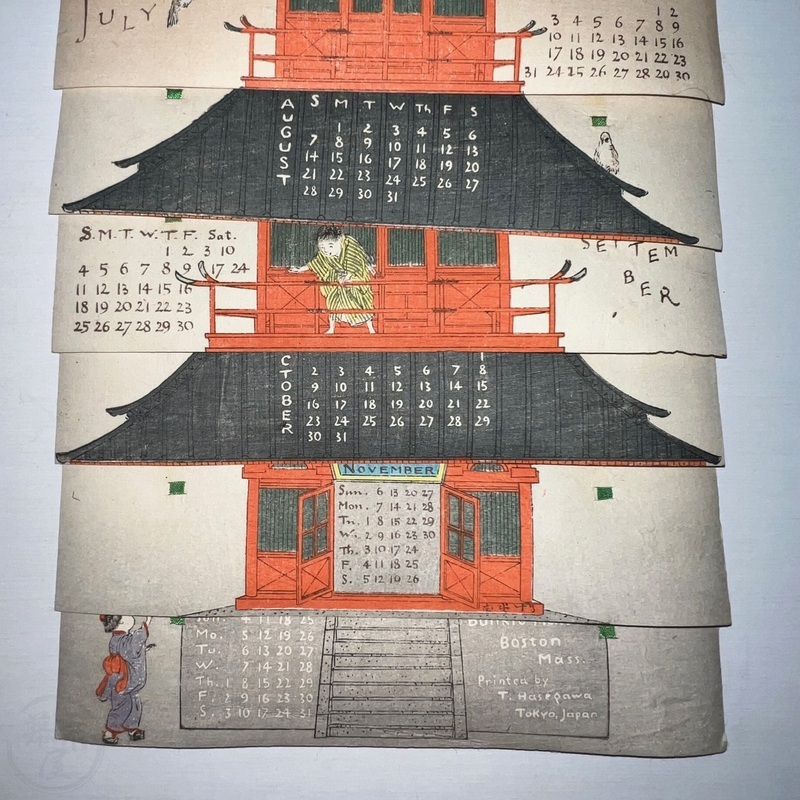 JULY
1 2
3 4 5 6 7 8 9
10 11 12 13 14 15 16
17 18 19 20 21 22 23
31 24 25 26 27 28 29 30
AUGUST
S M T W Th F S
1 2 3 4 5 6
7 8 9 10 11 12 13
14 15 16 17 18 19 20
21 22 23 24 25 26 27
28 29 30 31
S. M. T. W. T. F. Sat.
1 2 3 10
4 5 6 7 8 9 17 24
11 12 13 14 15 16
18 19 20 21 22 23
25 26 27 28 29 30
SEPTEM
BER
CTOBER
1
2 3 4 5 6 7 8
9 10 11 12 13 14 15
16 17 18 19 20 21 22
23 24 25 26 27 28 29
30 31
NOVEMBER
Sun. 6 13 20 27
Mon. 7 14 21 28
Tu. 1 8 15 22 29
W. 2 9 16 23 30
Th. 3 10 17 24
F. 4 11 18 25
S. 5 12 19 26
Sun. 4 11 18 25
Mo. 5 12 19 26
Tu. 6 13 20 27
W. 7 14 21 28
Th. 1 8 15 22 29
F. 2 9 16 23 30
S. 3 10 17 24 31
Boston
Mass.
Printed by
T. Hasegawa
Tokyo, Japan